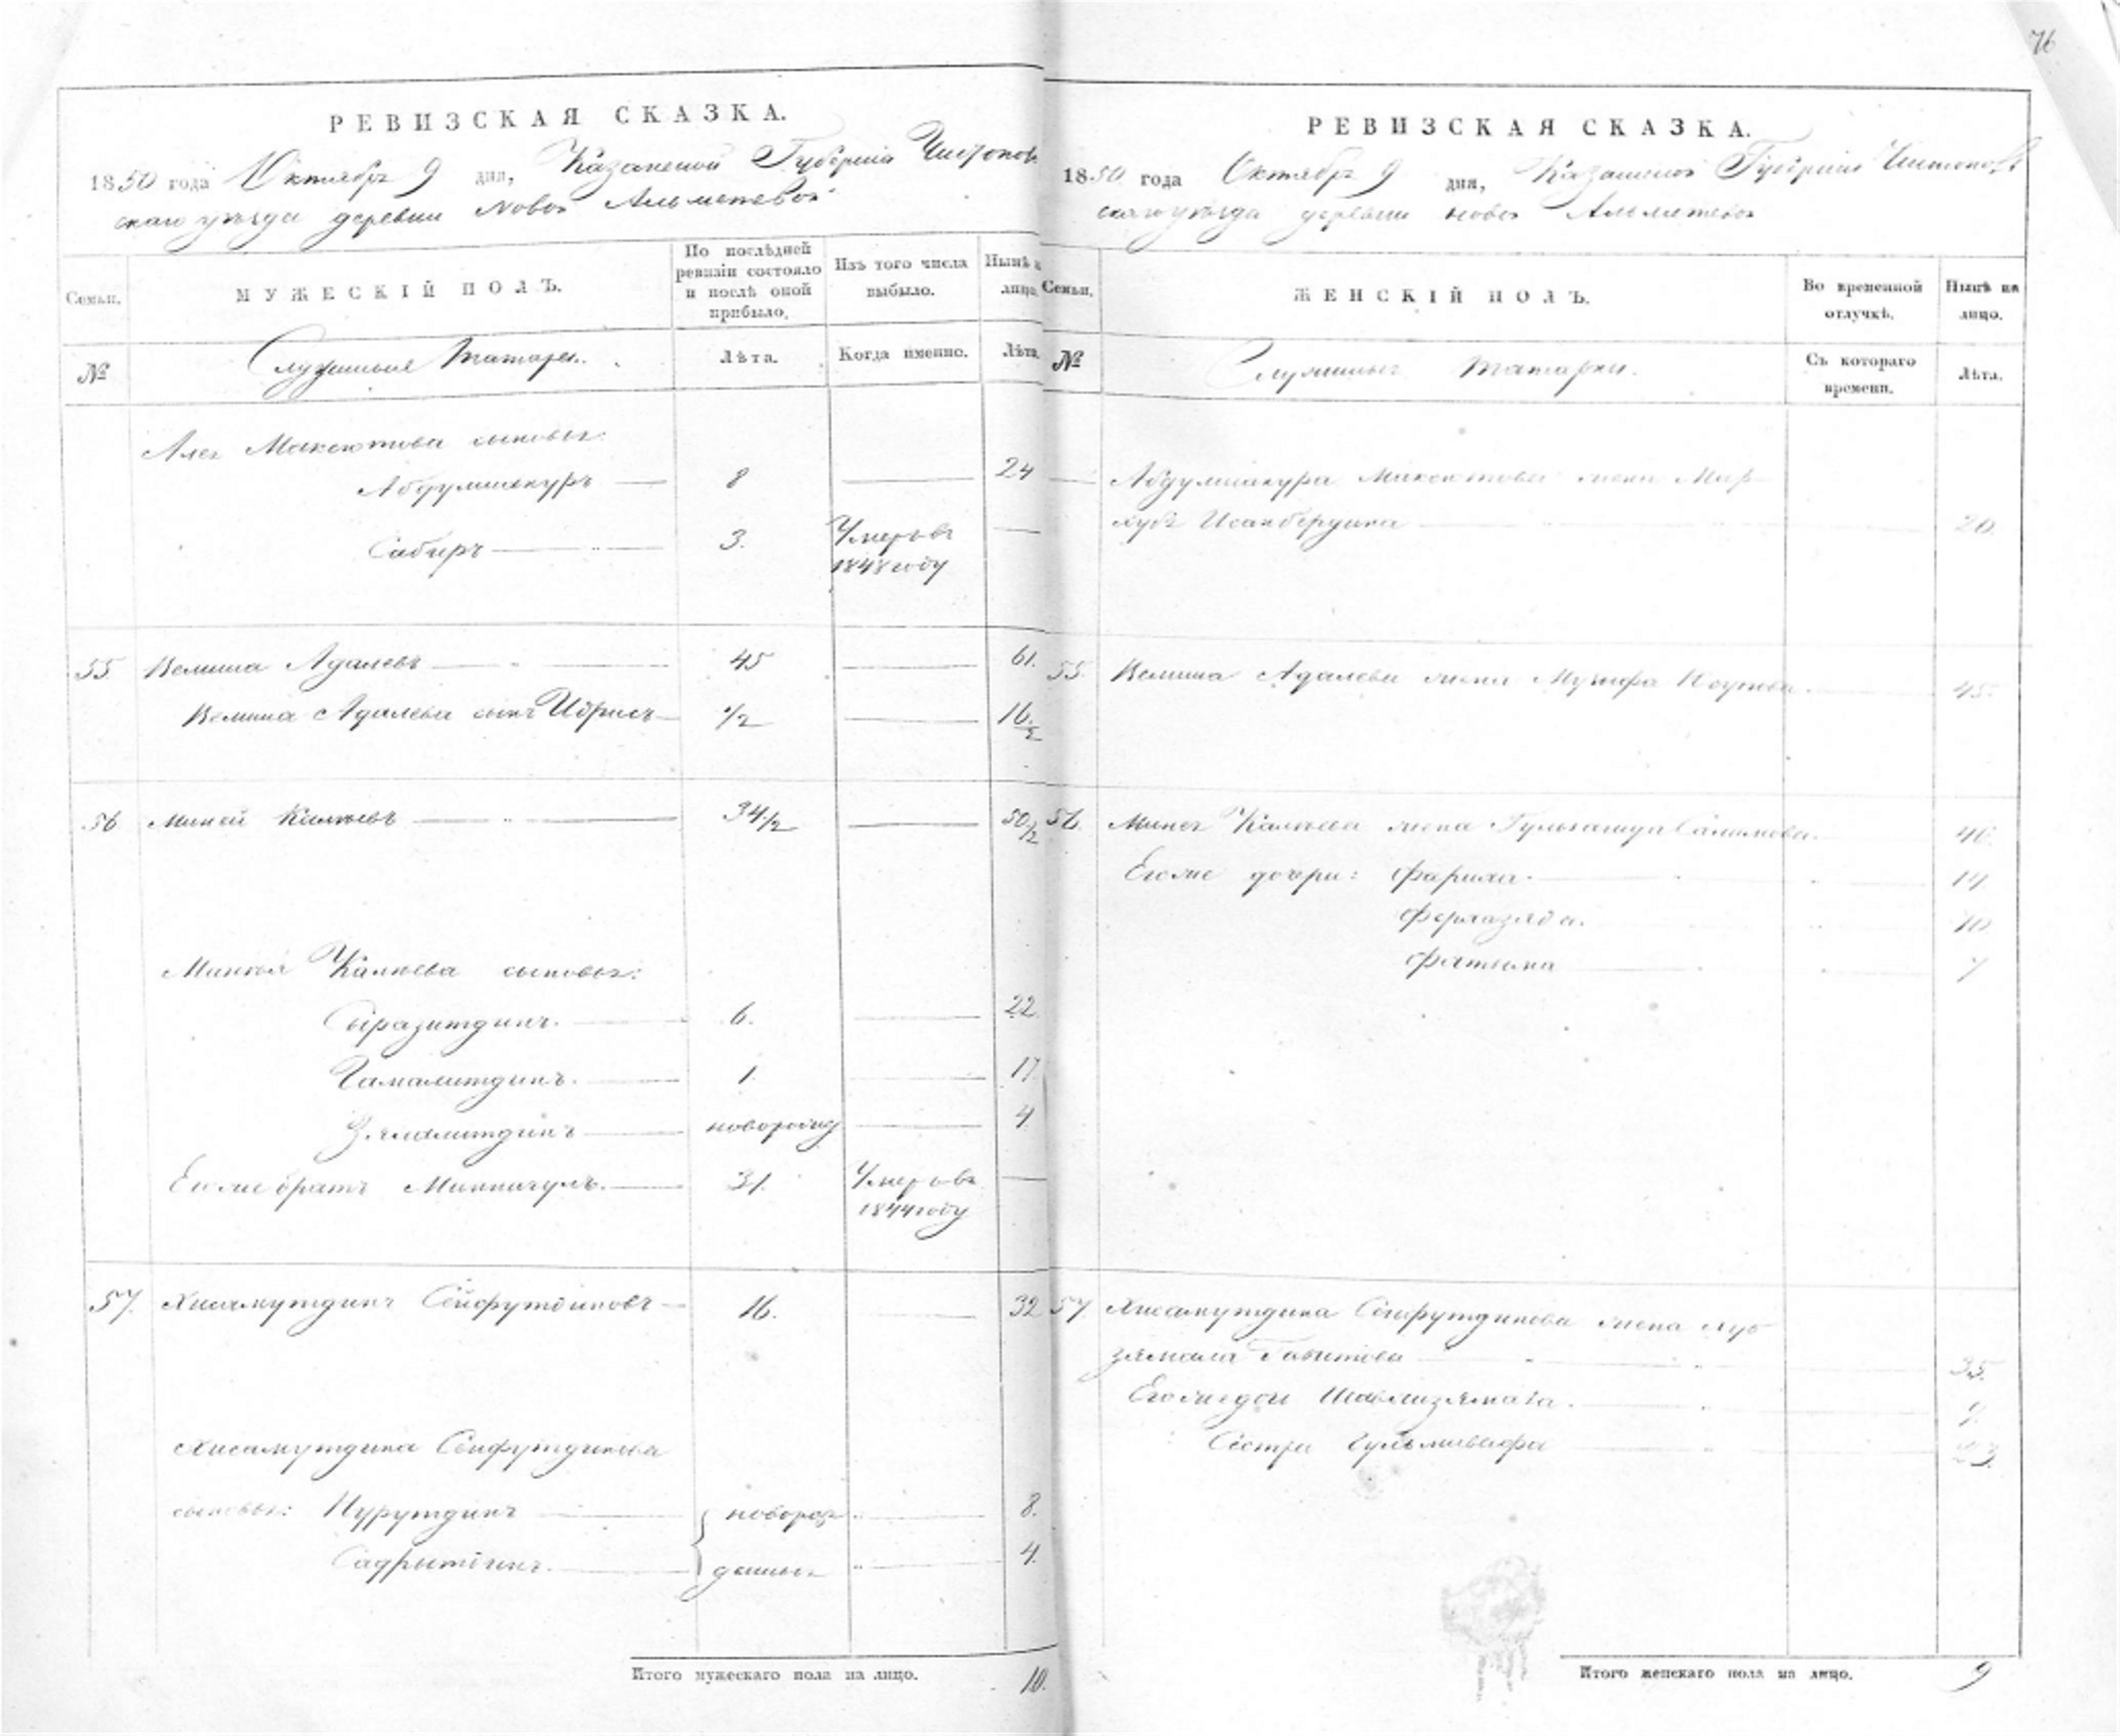 76
РЕВИЗСКАЯ СКАЗКА.
1850 года Октября 9 дня, Казанской Губернiи Чистополь
скаго уѣзда деревни Новой Альметевой
Семьи. МУЖЕСКIЙ ПОЛЪ. По послѣдней ревизiи состояло и послѣ оной прибыло. Изъ того числа выбыло. Нынѣ на лицо.
№ Служилые Татары. Лѣта. Когда именно. Лѣта.
Максютова сыновья:
Абдулшакуръ 8 24
Сабиръ 3. Умеръ въ
1848 году
55 Велиша Адалевъ 45 61.
Велиша Адалева сынъ Идрисъ 1/2 16 1/2
56 Миней Калкевъ 34 1/2 50 1/2
Минея Калкева сыновья:
Сыразитдинъ. 6. 22.
Гамалитдинъ. 1. 17.
Зямалитдинъ новорожд 4
Его же братъ Миннигулъ. 31. Умеръ въ
1844 году
57. Хисамутдинъ Сейфутдиновъ 16. 32
Хисамутдина Сейфутдинова
сыновья: Нурутдинъ новорож 8.
Садрытдинъ. денные 4.
Итого мужескаго пола на лицо. 10.
РЕВИЗСКАЯ СКАЗКА.
1850 года Октября 9 дня, Казанской Губернiи Чистополь
скаго уѣзда деревни Новой Альметевой
Семьи. ЖЕНСКIЙ ПОЛЪ. Во временной отлучкѣ. Нынѣ на лицо.
№ Служилыя Татарки. Съ котораго времени. Лѣта.
Абдулшакура Максютова жена Мар
хуба Исанбердина 20.
55. Велиша Адалева жена 45.
56. Минея Калкева жена Салимова. 40.
Его же дочери: Фариза. 14
10
Фатыма 7
57. Хисамутдина Сейфутдинова жена Хуб
зямала Габитова 35.
Его же дочь 9.
Сестра 23.
Итого женскаго пола на лицо. 9